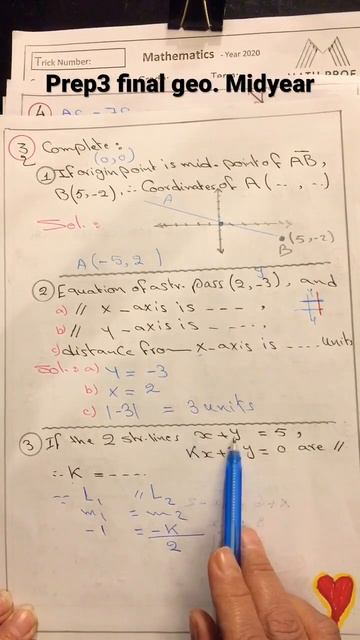 Trick Number:
Mathematics - Year 2020
Prep3 final geo. Midyear
MATH PROF
4
3 Complete:
(0,0)
1 If origin point is mid-point of AB,
B(5,-2), ∴ Coordinates of A (.., ..)
A
Sol.:
(5,-2)
B
A(-5, 2)
2 Equation of a str. pass (2,-3), and
a) // x-axis is ---- ,
b) // y-axis is ----.
c) distance from x-axis is .... units
Sol.: a) y = -3
b) x = 2
c) |-3| = 3 units
3 If the 2 str. lines x + y = 5,
Kx + y = 0 are //
∴ K = ----.
L₁ // L₂
m₁ = m₂
-1 = -K
2